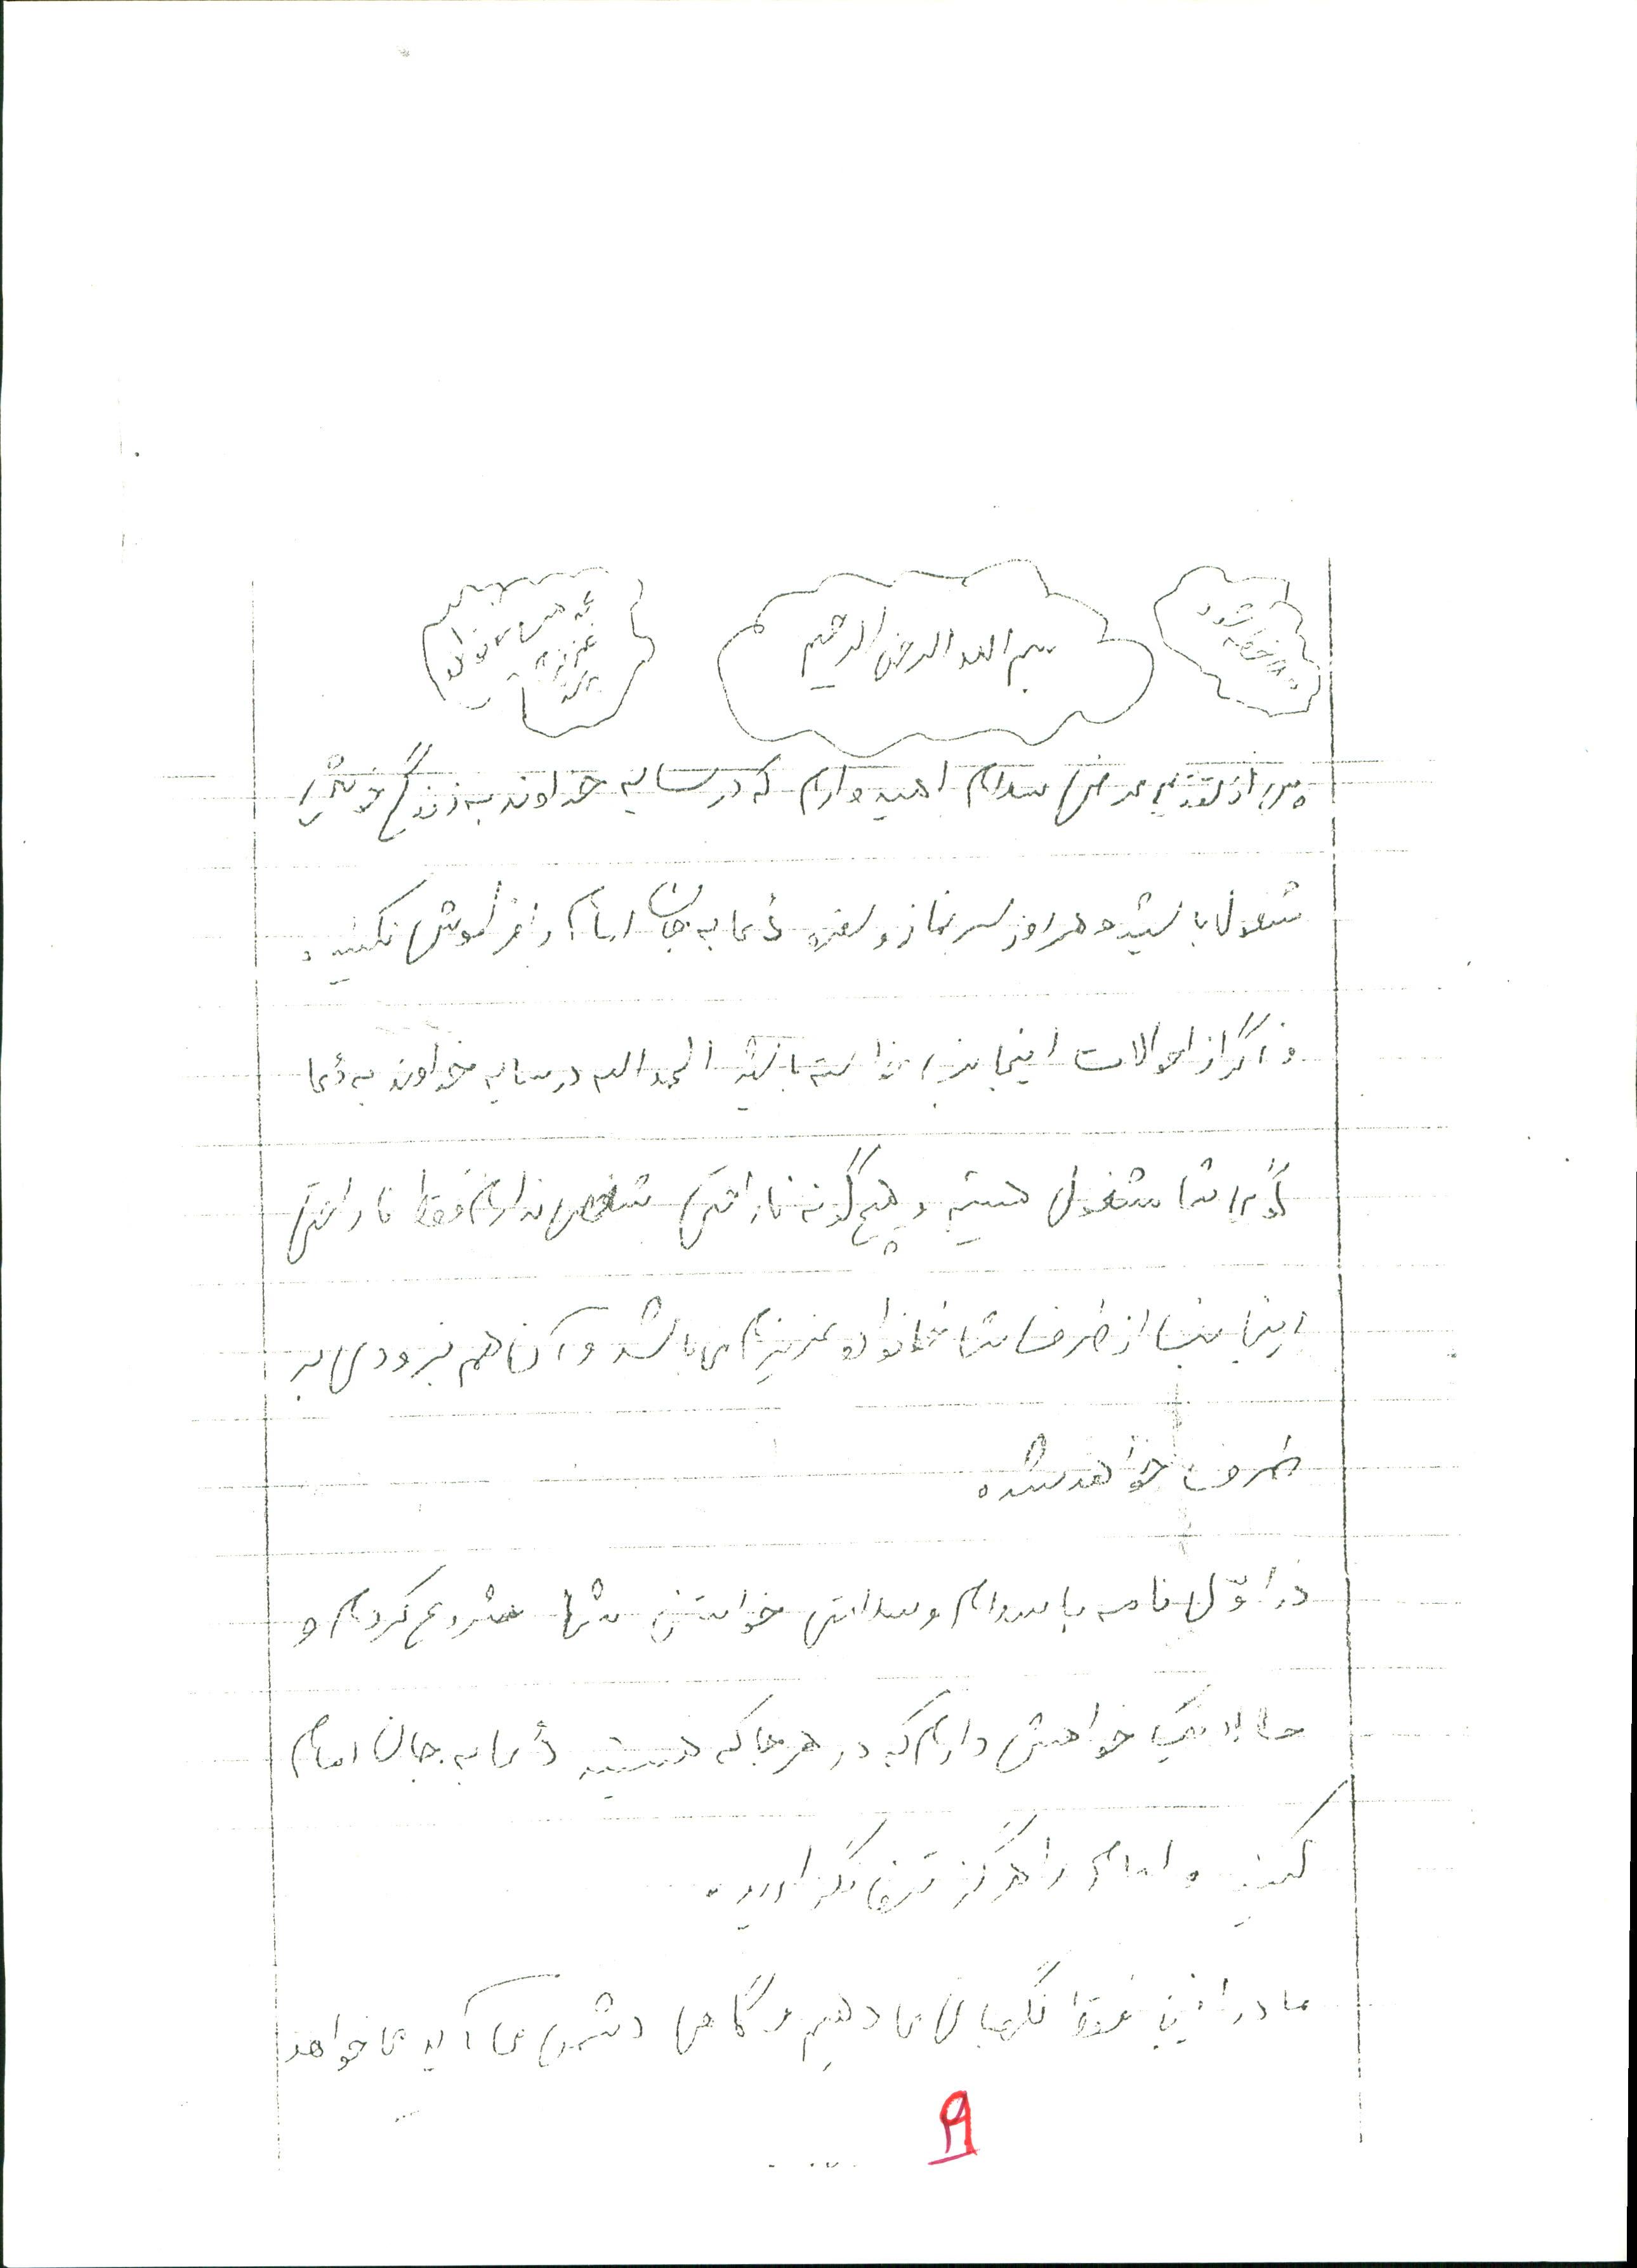 ملاحظه شود
بسم الله الرحمن الرحیم
خانواده عزیزم
پس از تقدیم عرض سلام امیدوارم که در سایه خداوند به زندگی خوش
مشغول باشید و هر روز سر نماز و سفره دعا به جان امام را فراموش نکنید.
و اگر از احوالات اینجانب خواسته باشید الحمدالله در سایه خداوند به دعا
گوی شما مشغول هستیم و هیچ گونه ناراحتی شخصی ندارم فقط ناراحتی
اینجانب از طرف شما خانواده عزیزم می باشد و آن هم بزودی بر
طرف خواهد شد.
در اول نامه با سلام و سلامتی خواستن شما شروع کردم و
حالا یک خواهش دارم که در هر جا که هستید دعا به جان امام
کنید و امام را هرگز تنها نگذارید.
ما در این فقط نگهبانی می دهیم و گاهی دشمن می آید می خواهد
۹